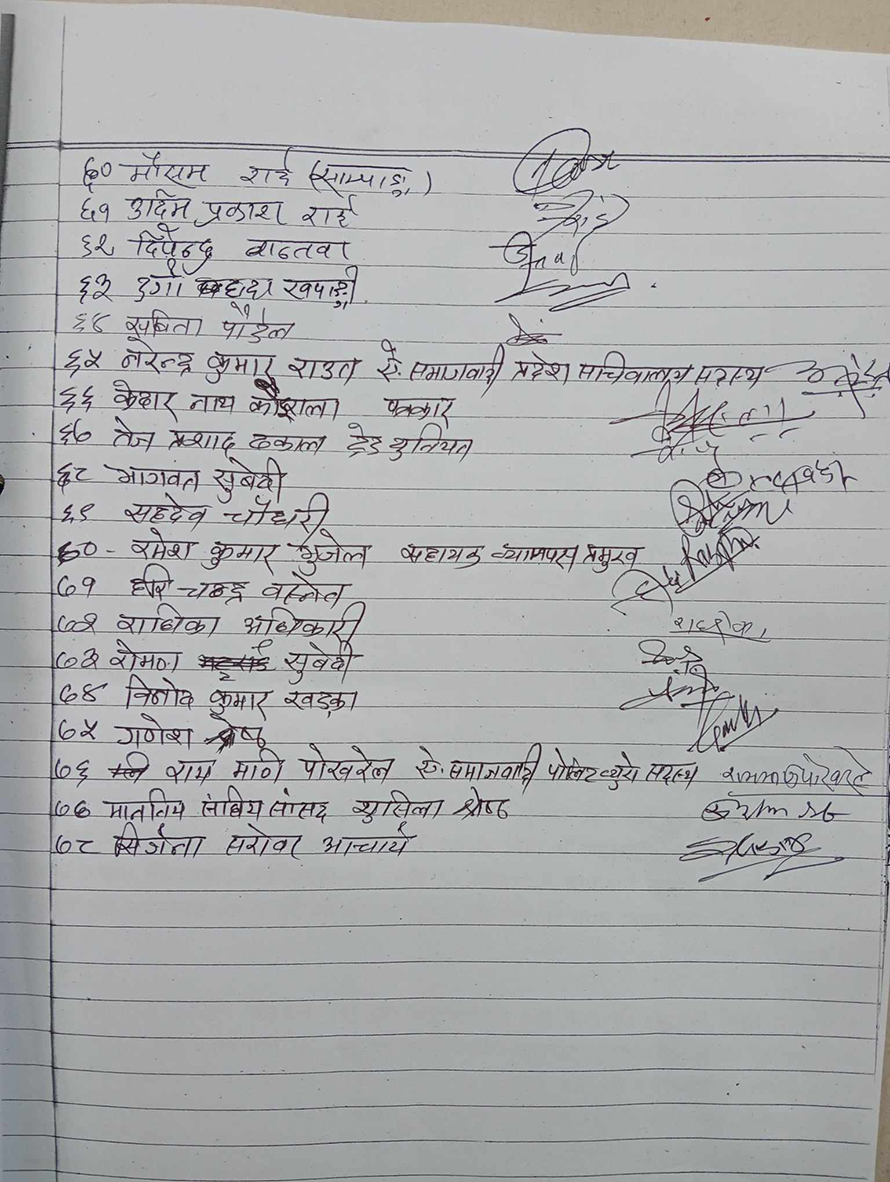 ६० मौसम राई (साम्पाङ्ग)
६१ उदिम प्रकाश राई
६२ दिपेन्द्र वास्तवा
६३ दुर्गा बहादुर खपाङ्गी
६४ सुविता पौडेल
६५ नरेन्द्र कुमार राउत ए. समाजवादी प्रदेश सचिवालय सदस्य
६६ केदार नाथ कोइराला पत्रकार
६७ तेज प्रशाद ढकाल ट्रेड युनियन
६८ भागवत सुवेदी
६९ सहदेव चौधरी
७०- रमेश कुमार भुजेल सहायक क्याम्पस प्रमुख
७१ हरि चन्द्र वस्नेत
७२ राधिका अधिकारी
७३ रोमना सुवेदी
७४ विनोद कुमार खड्का
७५ गणेश श्रेष्ठ
७६ राम मणी पोखरेल ए. समाजवादी पोलिटव्युरो सदस्य
७७ माननिय संघिय सांसद सुसिला श्रेष्ठ
७८ सिर्जना सरोवर आचार्य